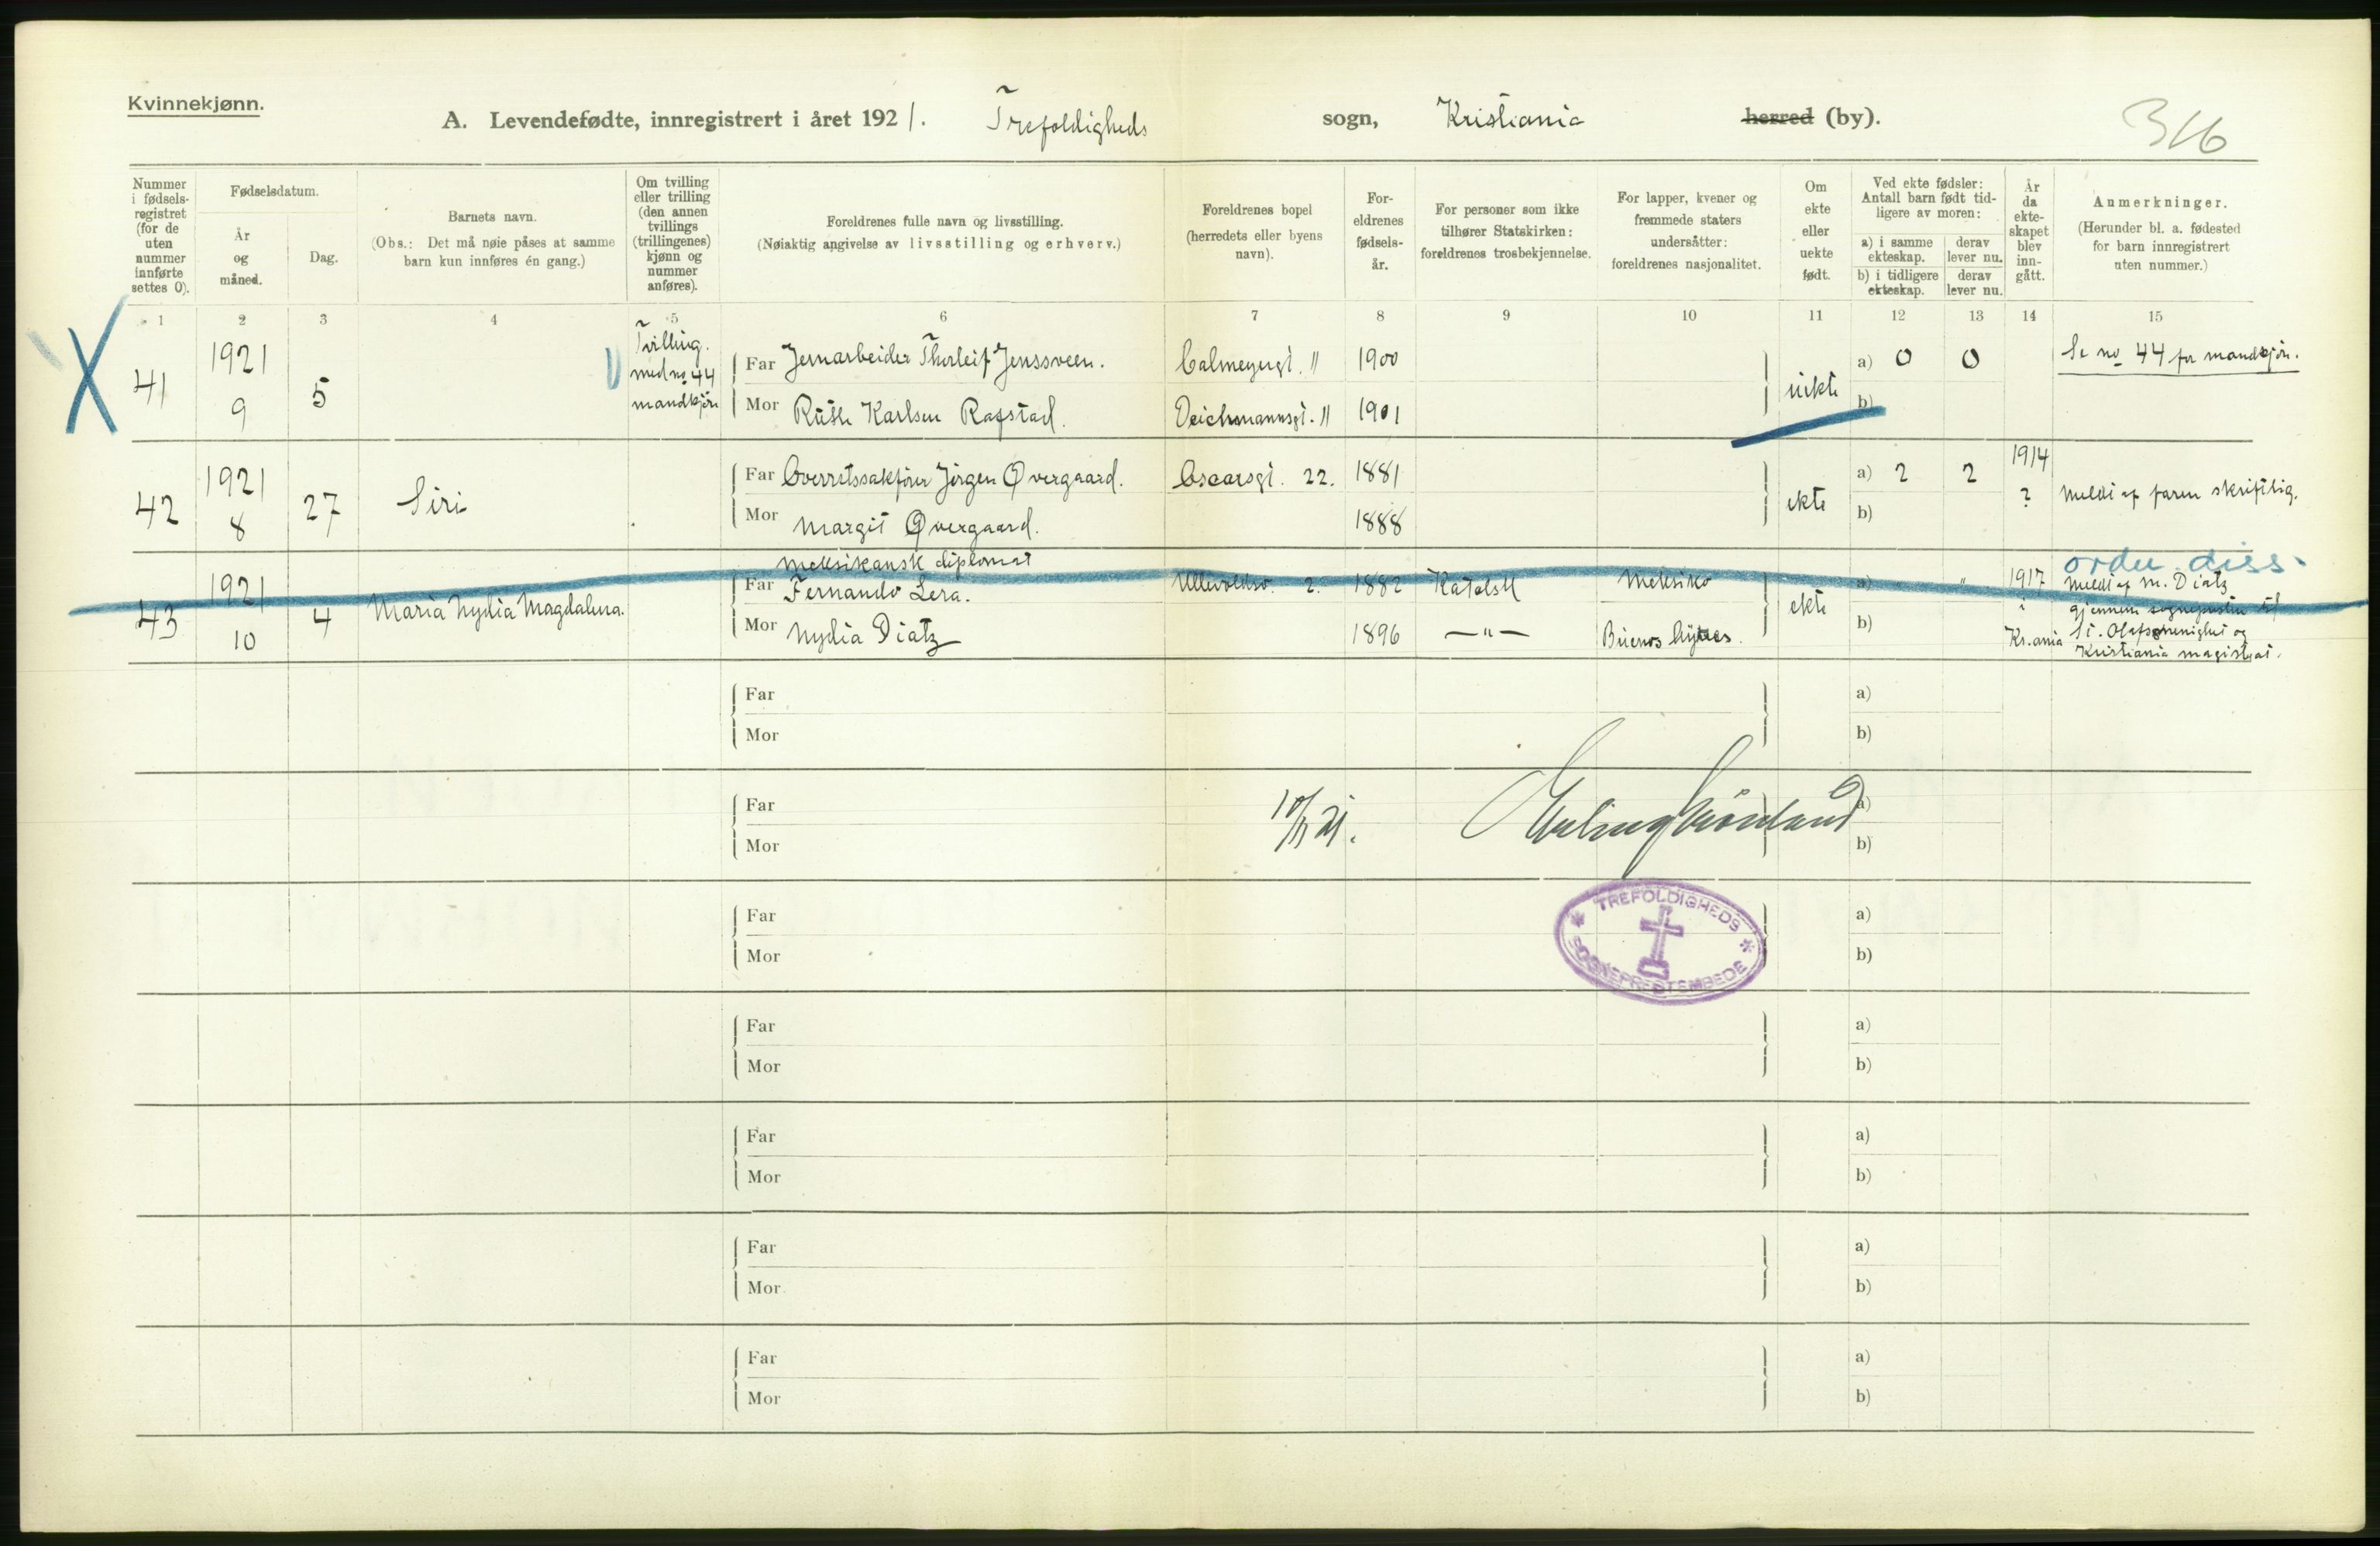 Kvinnekjønn.
A. Levendefødte, innregistrert i året 1921. Trefoldigheds sogn, Kristiania herred (by).
316
Nummer i fødsels-registret (for de uten nummer innførte settes 0).
Fødselsdatum.
År og måned.
Dag.
Barnets navn.
(Obs.: Det må nøie påses at samme barn kun innføres én gang.)
Om tvilling eller trilling (den annen tvillings (trillingenes) kjønn og nummer anføres).
Foreldrenes fulle navn og livsstilling.
(Nøiaktig angivelse av livsstilling og erhverv.)
Foreldrenes bopel (herredets eller byens navn).
For-eldrenes fødsels-år.
For personer som ikke tilhører Statskirken: foreldrenes trosbekjennelse.
For lapper, kvener og fremmede staters undersåtter: foreldrenes nasjonalitet.
Om ekte eller uekte født.
Ved ekte fødsler: Antall barn født tid-ligere av moren:
a) i samme ekteskap.
derav lever nu.
b) i tidligere ekteskap.
derav lever nu.
År da ekte-skapet blev inn-gått.
Anmerkninger.
(Herunder bl. a. fødested for barn innregistrert uten nummer.)
1 2 3 4 5 6 7 8 9 10 11 12 13 14 15
X
41 1921 9 5
Tvilling.
med no 44
mandkjøn
Far Jernarbeider Thorleif Jenssveen. Calmeyergt. 11 1900
Mor Ruth Karlsen Rafstad. Deichmannsgt. 11 1901
uekte a) 0 0
b)
Se no 44 for mandkjøn.
42 1921 8 27 Siri
Far Overretssakfører Jørgen Øvergaard. Oscarsgt. 22. 1881
Mor Margit Øvergaard. 1888
ekte a) 2 2
b)
1914
?
Meldt af faren skriftlig.
43 1921 10 4 Maria Nydia Magdalena.
meksikansk diplomat
Far Fernando Lera. Ullevoldsv. 2. 1882 Katolsk Meksiko
Mor Nydia Diatz 1896 — " — Buenos Ayres.
ekte a) "
b)
1917
?
Kr.ania
ordu. diss.
Meldt af M. Diatz
gjennem sognepresten til
St. Olafsmenighet og
Kristiania magistrat.
Far a)
Mor b)
Far a)
Mor b)
10/11 21.
Far a)
Mor b)
TREFOLDIGHEDS
SOGNEPRESTEMBEDE
Far a)
Mor b)
Far a)
Mor b)
Far a)
Mor b)
Far a)
Mor b)